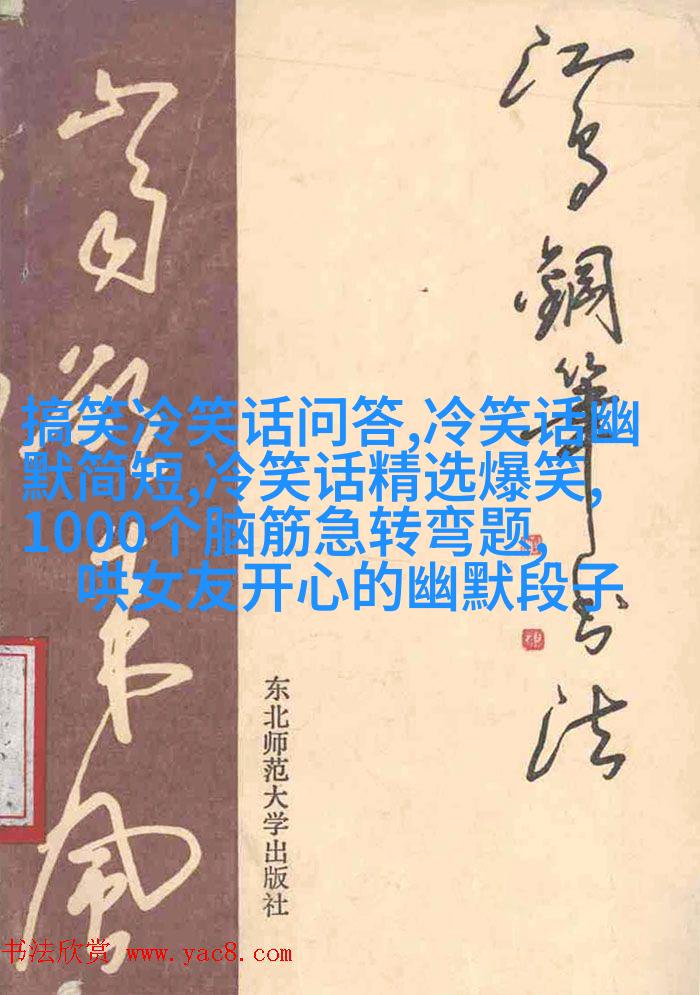 江鸟鋼筆书法
搞笑冷笑话问答,冷笑话幽
默简短,冷笑话精选爆笑,
1000个脑筋急转弯题,
哄女友开心的幽默段子
东北师范大学出版社
书法欣赏 www.yac8.com